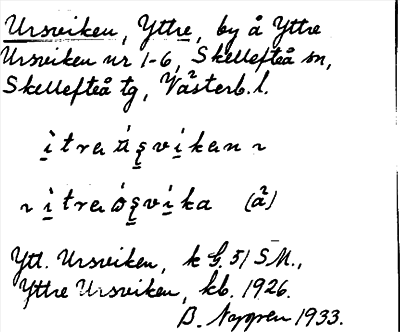 Ursviken, Yttre, by å Yttre
Ursviken nr 1-6, Skellefteå sn,
Skellefteå tg, Västerb. l.
ìtra úşvíkan ~
~ ìtra óşvíka (å)
Ytt. Ursviken, k G. 51 SM.,
Yttre Ursviken, kb. 1926.
B. 1933.